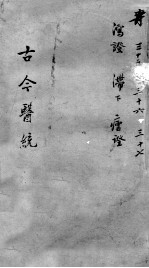 三十五 三十六 三十七
瀉證 滯下 瘧證
古今醫統